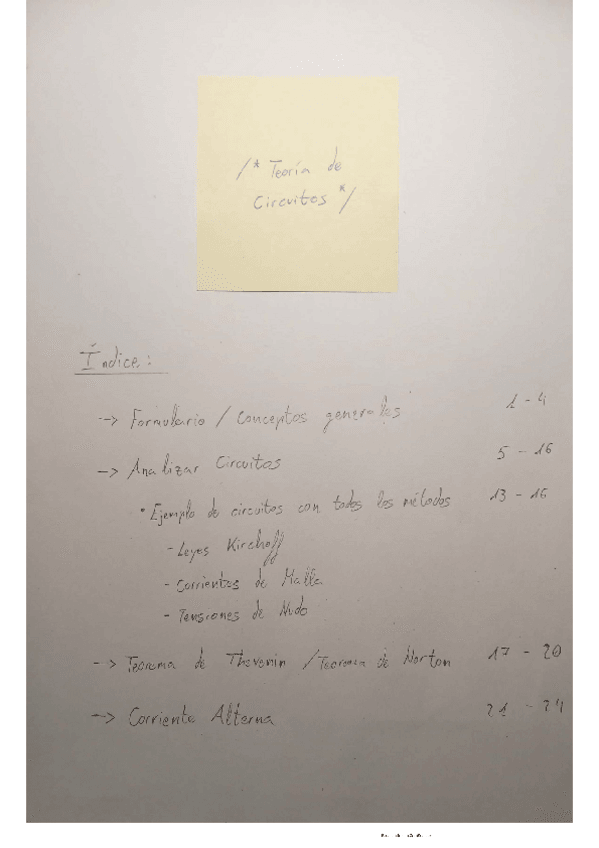 /* Teoría de
Circuitos */
Índice:
-> Formulario / Conceptos generales 1 - 4
-> Analizar Circuitos 5 - 16
• Ejemplo de circuitos con todos los métodos 13 - 16
- Leyes Kirchoff
- Corrientes de Malla
- Tensiones de Nudo
-> Teorema de Thevenin / Teorema de Norton 17 - 20
-> Corriente Alterna 21 - 24